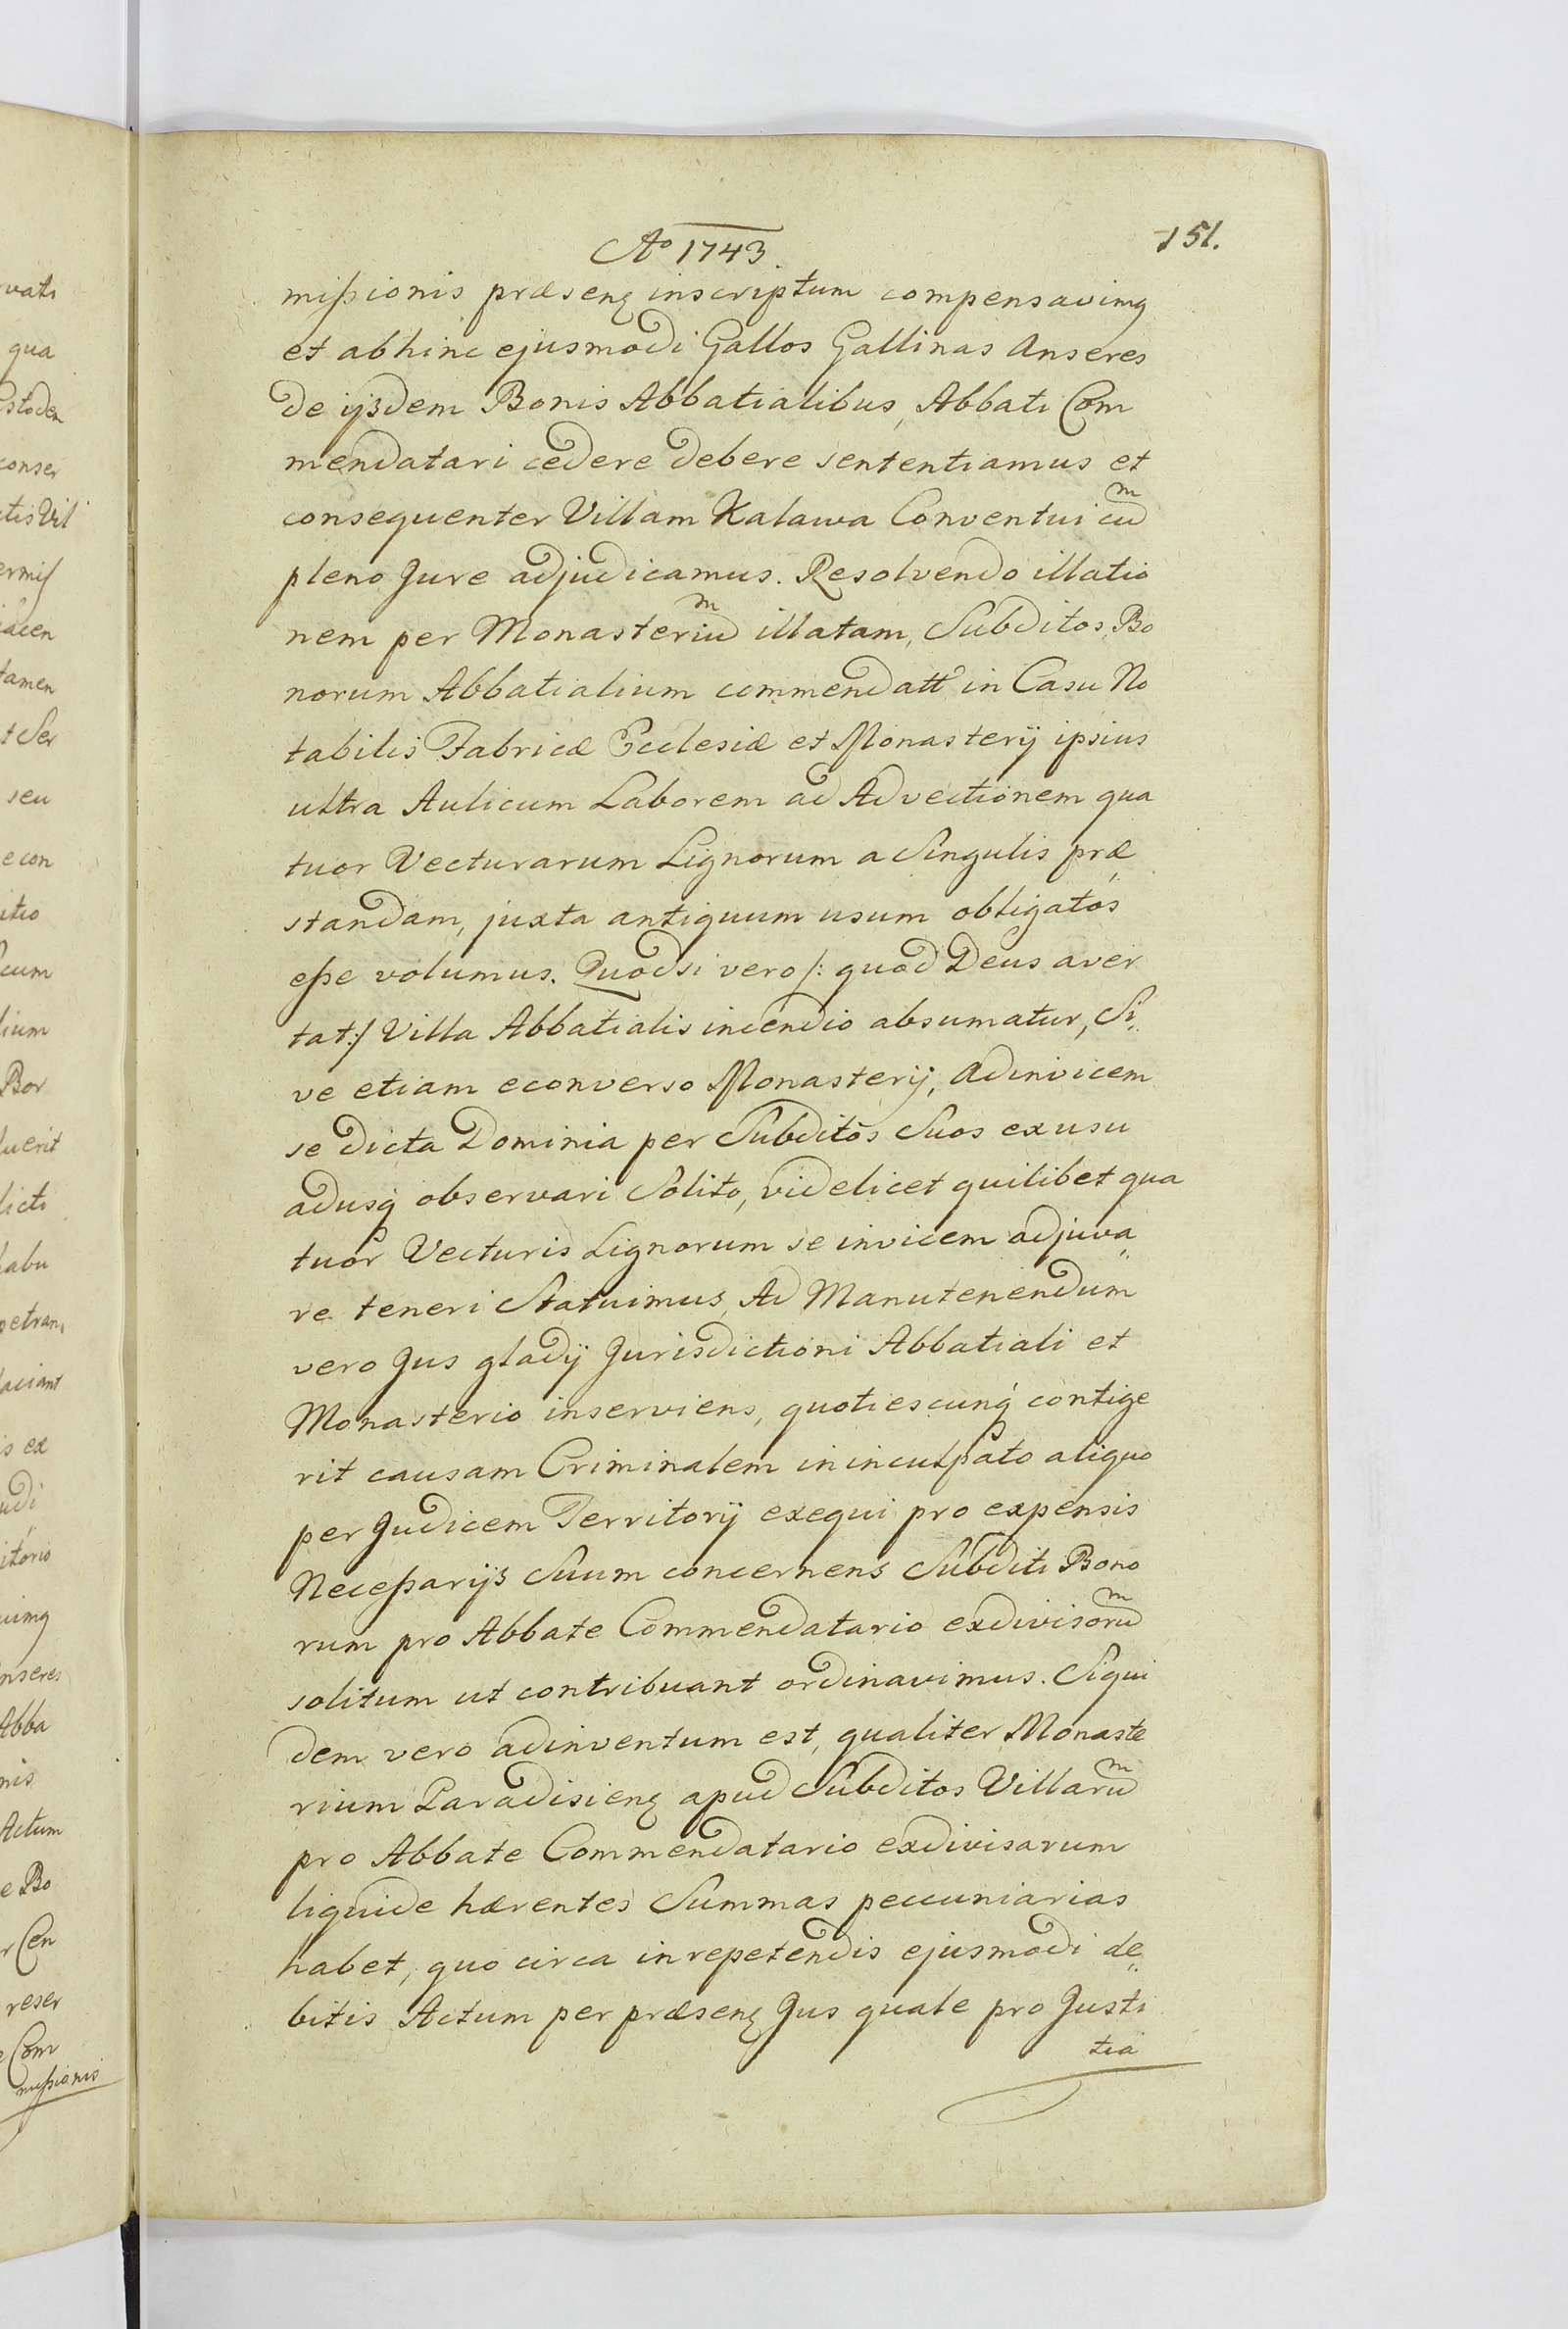 Ao 1743.
151.
mißionis præsenꝫ inscriptum compensavimꝫ
et abhinc ejusmodi Gallos Gallinas Anseres
de ijsdem Bonis Abbatialibus, Abbati Com
mendatari cedere debere sententiamus et
consequenter Villam Kalawa Conventui cum
pleno Jure adjudicamus. Resolvendo illatio
nem per Monasterium illatam, Subditos Bo
norum Abbatialium commendatt in Casu No
tabilis Fabricæ Ecclesiæ et Monasterij ipsius
ultra Aulicum Laborem ad Advectionem qua
tuor Vecturarum Lignorum a Singulis præ
standam, juxta antiquum usum obligatos
eße volumus. Quodsi vero /: quod Deus aver
tat:/ Villa Abbatialis incendio absumatur, Si„
ve etiam econverso Monasterij, adinvicem
se dicta Dominia per Subditos Suos ex usu
adusq observari Solito, videlicet quilibet qua
tuor Vecturis Lignorum se invicem adjuva„
re teneri Statuimus, Ad Manutenendum
vero Jus gladij Jurisdictioni Abbatiali et
Monasterio inserviens, quotiescunq contige
rit causam Criminalem in inculpato aliquo
per Judicem Territorij exequi pro expensis
Neceßarijs Suum concernens Subditi Bono
rum pro Abbate Commendatario exdivisorum
solitum ut contribuant ordinavimus. Siqui
dem vero adinventum est, qualiter Monaste
rium Paradisienꝫ apud Subditos Villarum
pro Abbate Commendatario exdivisarum
liquide hærentes Summas peccuniarias
habet, quo circa in repetendis ejusmodi de„
bitis Actum per præsenꝫ Jus quale pro Justi
tia
vati
qua
stoden
conser
ctis Vil
ermiſ
iacen
tamen
t Ser
seu
e con
itio
cum
lium
Bor
luerit
licti
habu
petran
faciant
is ex
udi
itorio
uimꝫ
nseres
Abba
nis
Actum
e Bo
r Cen
reser
e Com
mißionis